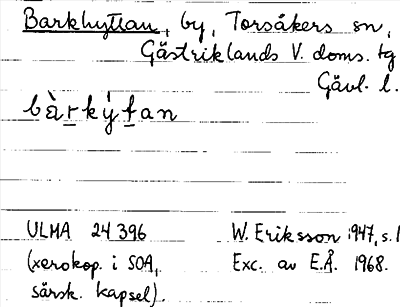 Barkhyttan, by, Torsåkers sn,
Gästriklands V. doms. tg
Gävl. l.
bàrkýtan
ULMA 24396 W. Eriksson 1947, s. 1
(xerokop. i SOA, Exc. av E.Å. 1968.
särsk. kapsel).